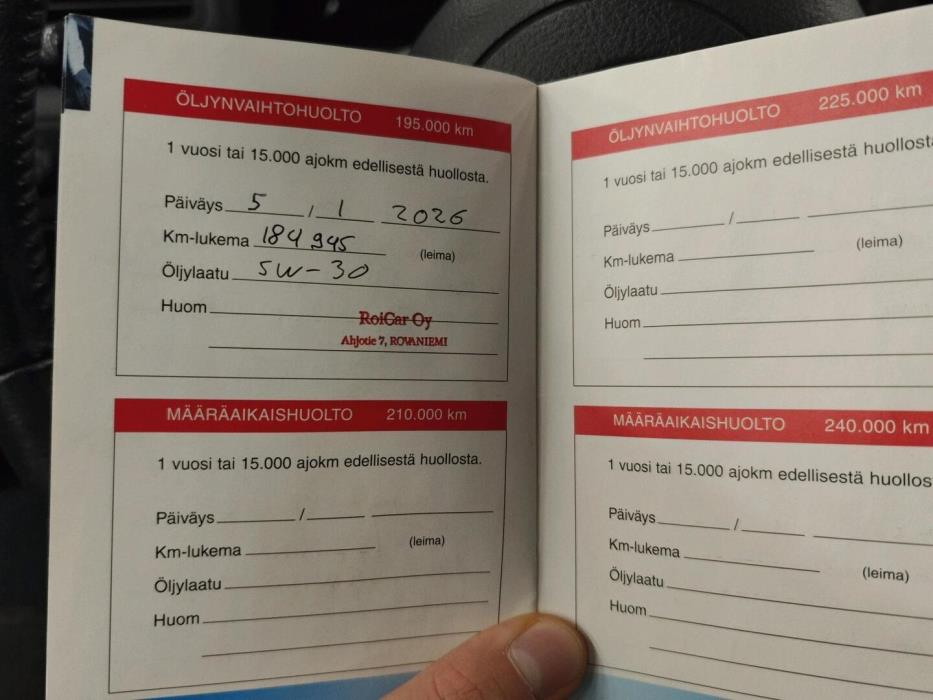 ÖLJYNVAIHTOHUOLTO 195.000 km
1 vuosi tai 15.000 ajokm edellisestä huollosta.
Päiväys 5 / 1 2026
Km-lukema 184 945 (leima)
Öljylaatu 5W-30
Huom
RoiCar Oy
Ahjotie 7, ROVANIEMI
MÄÄRÄAIKAISHUOLTO 210.000 km
1 vuosi tai 15.000 ajokm edellisestä huollosta.
Päiväys /
Km-lukema (leima)
Öljylaatu
Huom
ÖLJYNVAIHTOHUOLTO 225.000 km
1 vuosi tai 15.000 ajokm edellisestä huollost
Päiväys /
Km-lukema (leima)
Öljylaatu
Huom
MÄÄRÄAIKAISHUOLTO 240.000 km
1 vuosi tai 15.000 ajokm edellisestä huollos
Päiväys /
Km-lukema (leima)
Öljylaatu
Huom